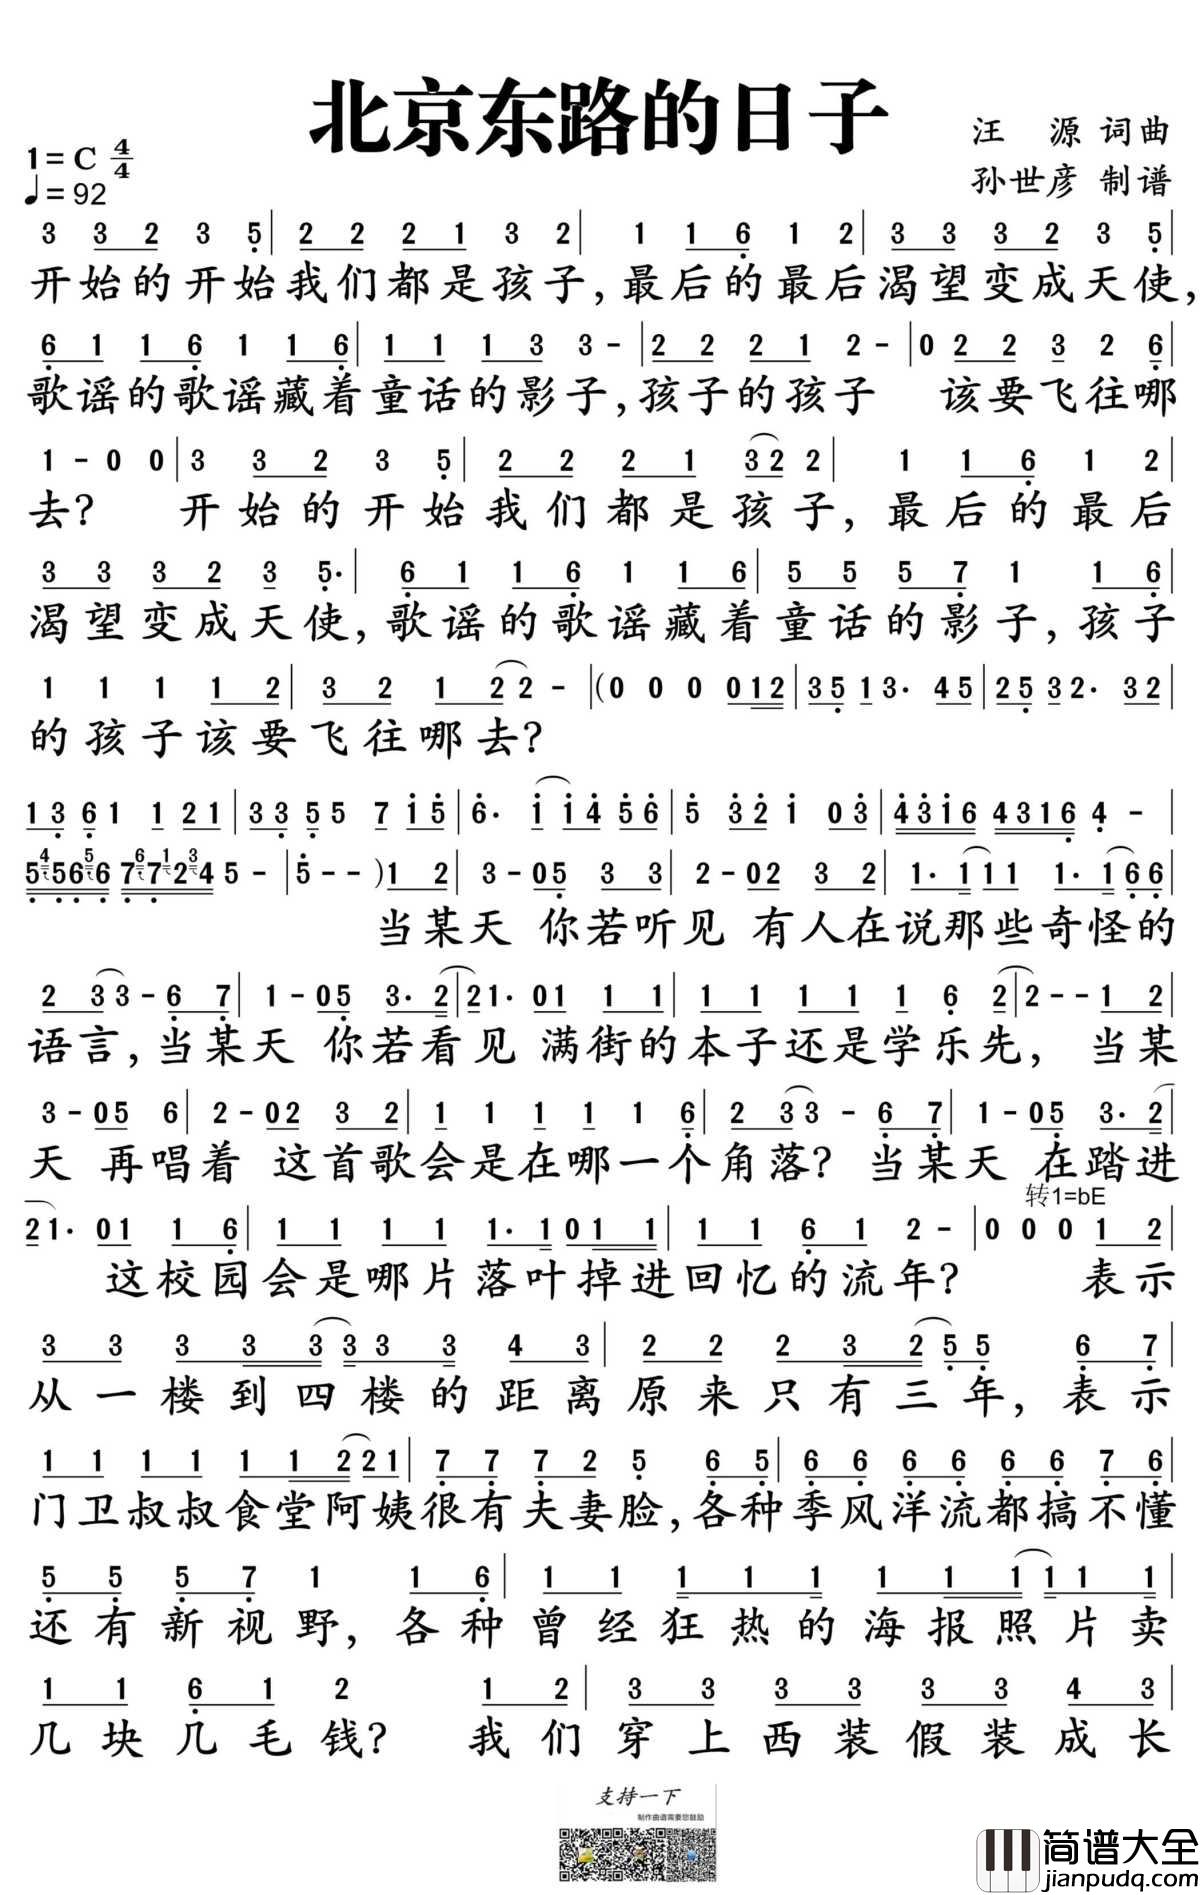 北京东路的日子
汪 源 词曲
孙世彦 制谱
1= C 4/4
♩= 92
3 3 2 3 5 | 2 2 2 1 3 2 | 1 1 6 1 2 | 3 3 3 2 3 5 |
开始的开始我们都是孩子,最后的最后渴望变成天使,
6 1 1 6 1 1 6 | 1 1 1 3 3 - | 2 2 2 1 2 - | 0 2 2 3 2 6 |
歌谣的歌谣藏着童话的影子,孩子的孩子 该要飞往哪
1 - 0 0 | 3 3 2 3 5 | 2 2 2 1 3 2 2 | 1 1 6 1 2
去? 开始的开始我们都是孩子,最后的最后
3 3 3 2 3 5· | 6 1 1 6 1 1 6 | 5 5 5 7 1 1 6 |
渴望变成天使,歌谣的歌谣藏着童话的影子,孩子
1 1 1 1 2 | 3 2 1 2 2 - | (0 0 0 0 1 2 | 3 5 1 3· 4 5 | 2 5 3 2· 3 2 |
的孩子该要飞往哪去?
1 3 6 1 1 2 1 | 3 3 5 5 7 1 5 | 6· 1 1 4 5 6 | 5 3 2 1 0 3 | 4 3 1 6 4 3 1 6 4 - |
5 4 5 6 5 6 7 6 7 1 2 3 4 5 - | 5 - - ) 1 2 | 3 - 0 5 3 3 | 2 - 0 2 3 2 | 1· 1 1 1 1· 1 6 6 |
当某天 你若听见 有人在说那些奇怪的
2 3 3 - 6 7 | 1 - 0 5 3· 2 | 2 1· 0 1 1 1 | 1 1 1 1 1 6 2 | 2 - - 1 2 |
语言,当某天 你若看见 满街的本子还是学乐先, 当某
3 - 0 5 6 | 2 - 0 2 3 2 | 1 1 1 1 1 6 | 2 3 3 - 6 7 | 1 - 0 5 3· 2 |
天 再唱着 这首歌会是在哪一个角落? 当某天 在踏进
转1=bE
2 1· 0 1 1 6 | 1 1 1 1 1· 1 0 1 1 | 1 1 6 1 2 - | 0 0 0 1 2 |
这校园会是哪片落叶掉进回忆的流年? 表示
3 3 3 3 3 3 3 3 4 3 | 2 2 2 3 2 5 5 6 7 |
从一楼到四楼的距离原来只有三年,表示
1 1 1 1 1 1 2 2 1 | 7 7 7 2 5 6 5 | 6 6 6 6 6 6 7 6 |
门卫叔叔食堂阿姨很有夫妻脸,各种季风洋流都搞不懂
5 5 5 7 1 1 6 | 1 1 1 1 1 1 1 1 1 1 1 |
还有新视野,各种曾经狂热的海报照片卖
1 1 6 1 2 1 2 | 3 3 3 3 3 3 4 3 |
几块几毛钱? 我们穿上西装假装成长
支持一下
制作曲谱需要您鼓励
简谱大全
jianpudq.com